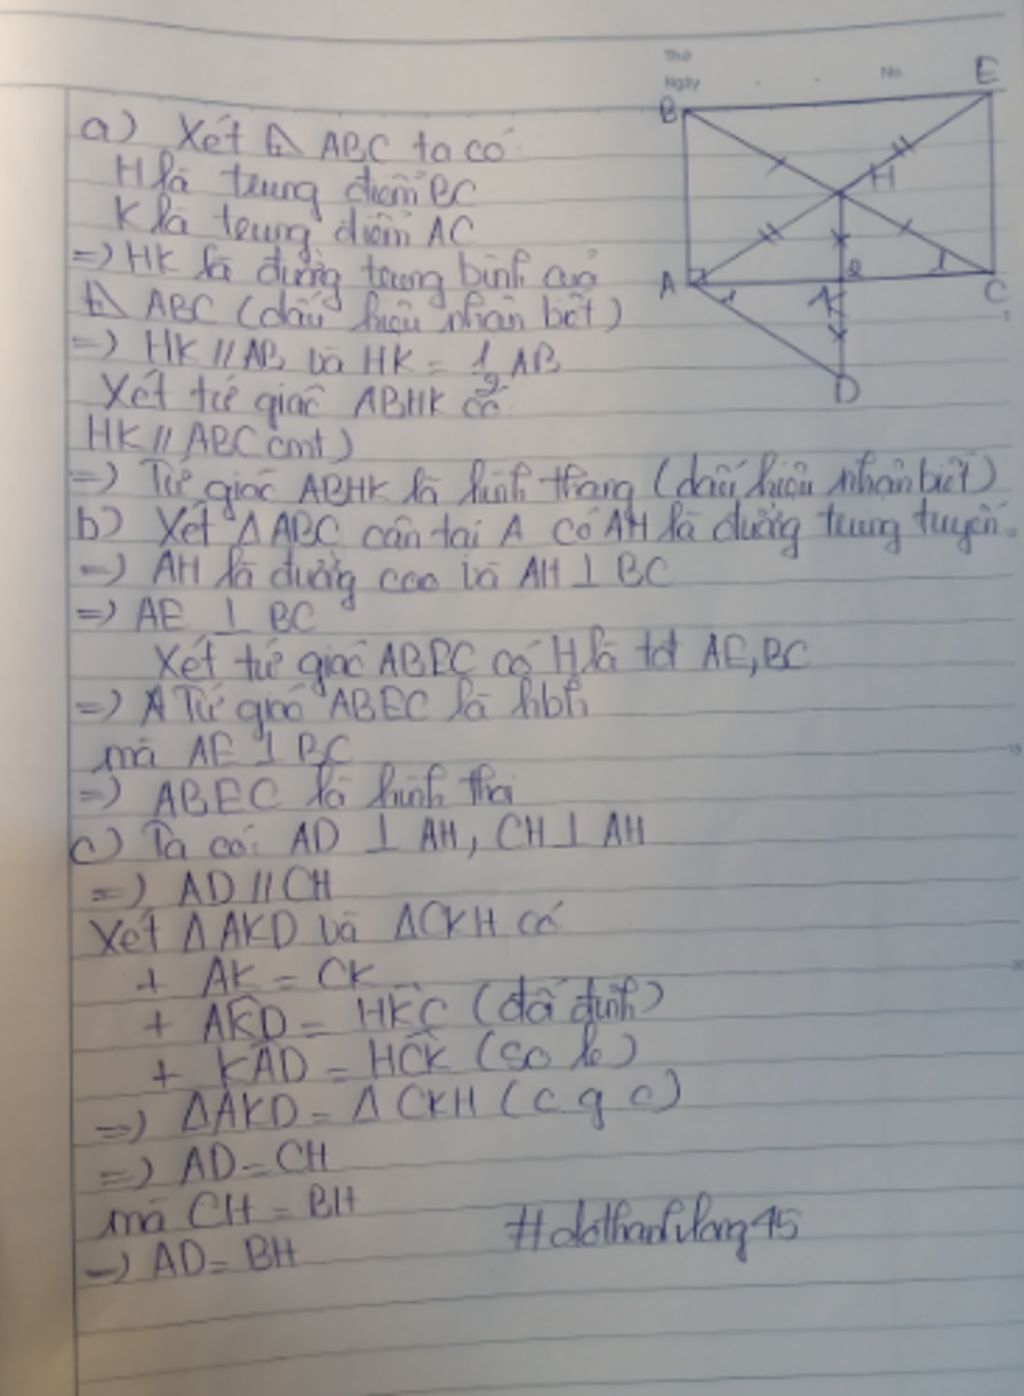 Thứ
Ngày
No.
B
E
H
A
K
C
D
a) Xét △ ABC ta có
H là trung điểm BC
K là trung điểm AC
=> HK là đường trung bình của
△ ABC (dấu hiệu nhận biết)
=> HK // AB và HK = 1/2 AB
Xét tứ giác ABHK có
HK // AB (cmt)
=> Tứ giác ABHK là hình thang (dấu hiệu nhận biết)
b) Xét △ ABC cân tại A có AH là đường trung tuyến
=> AH là đường cao và AH ⊥ BC
=> AE ⊥ BC
Xét tứ giác ABEC có H là tđ AE, BC
=> Tứ giác ABEC là hbh
mà AE ⊥ BC
=> ABEC là hình thoi
c) Ta có: AD ⊥ AH, CH ⊥ AH
=> AD // CH
Xét △ AKD và △ CKH có
+ AK = CK
+ AKD = HKC (đối đỉnh)
+ KAD = HCK (so le)
=> △ AKD = △ CKH (c g c)
=> AD = CH
mà CH = BH
=> AD = BH